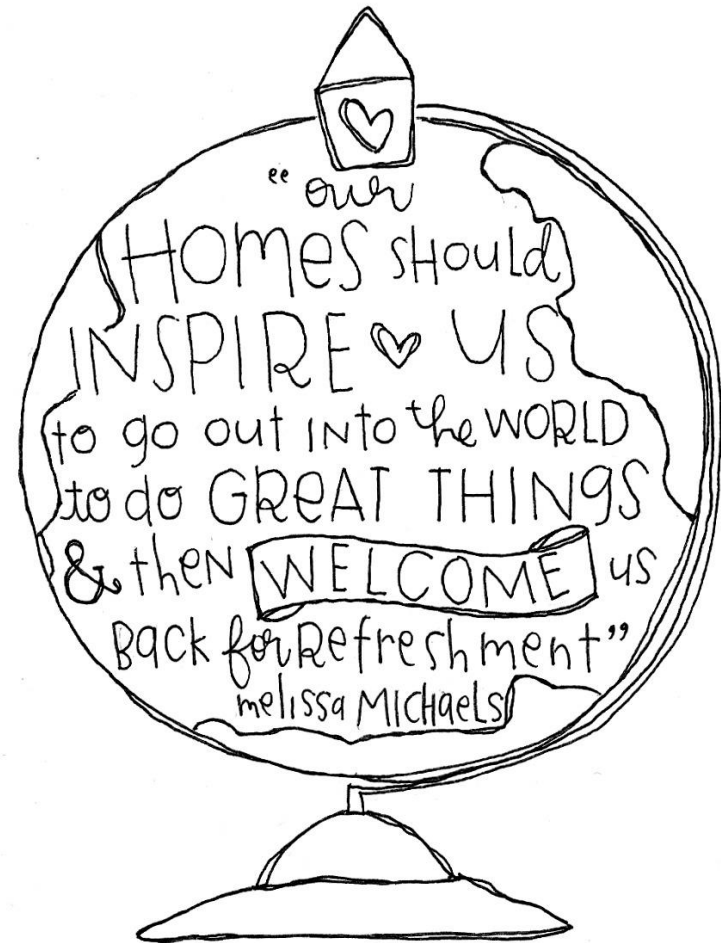 "our
HOMeS SHOULD
INSPIRE US
to go out INto the WORLD
to do GReAT THINgS
& theN WELCOME us
Back for Refreshment"
melissa MICHaeLs